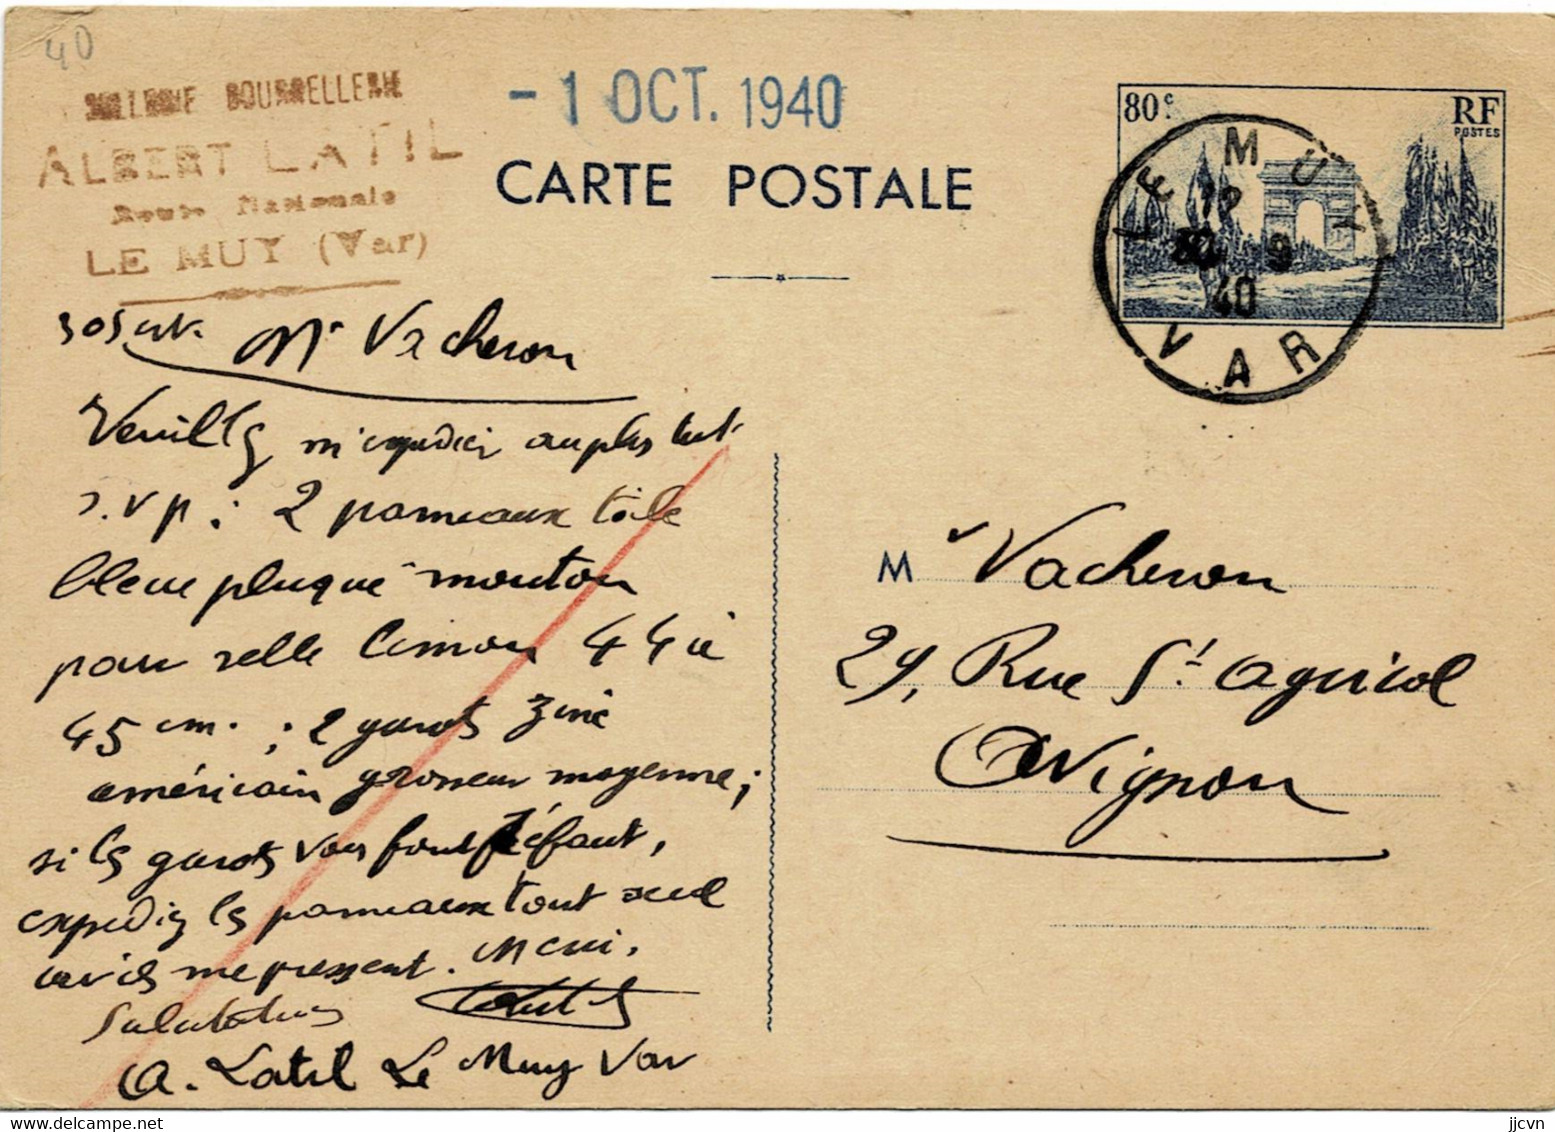 40
SELLERIE BOURRELLERIE
ALBERT LATIL
Route Nationale
LE MUY (Var)
- 1 OCT. 1940
CARTE POSTALE
80c
RF
POSTES
LE MUY
12
30 9
40
VAR
30 Sept. Mr Vacheron
Veuillez m'expedier au plus tot
s.v.p : 2 panneaux toile
bleue pluqué mouton
pour selle limon 44 à
45 cm. ; 2 garots zinc
américain grosseur moyenne ;
si les garots vous font défaut,
expediez les panneaux tout seul
car ils me pressent. Merci.
Salutations
A. Latil Le Muy Var
M r Vacheron
29, Rue St Agricol
Avignon
jjcvn